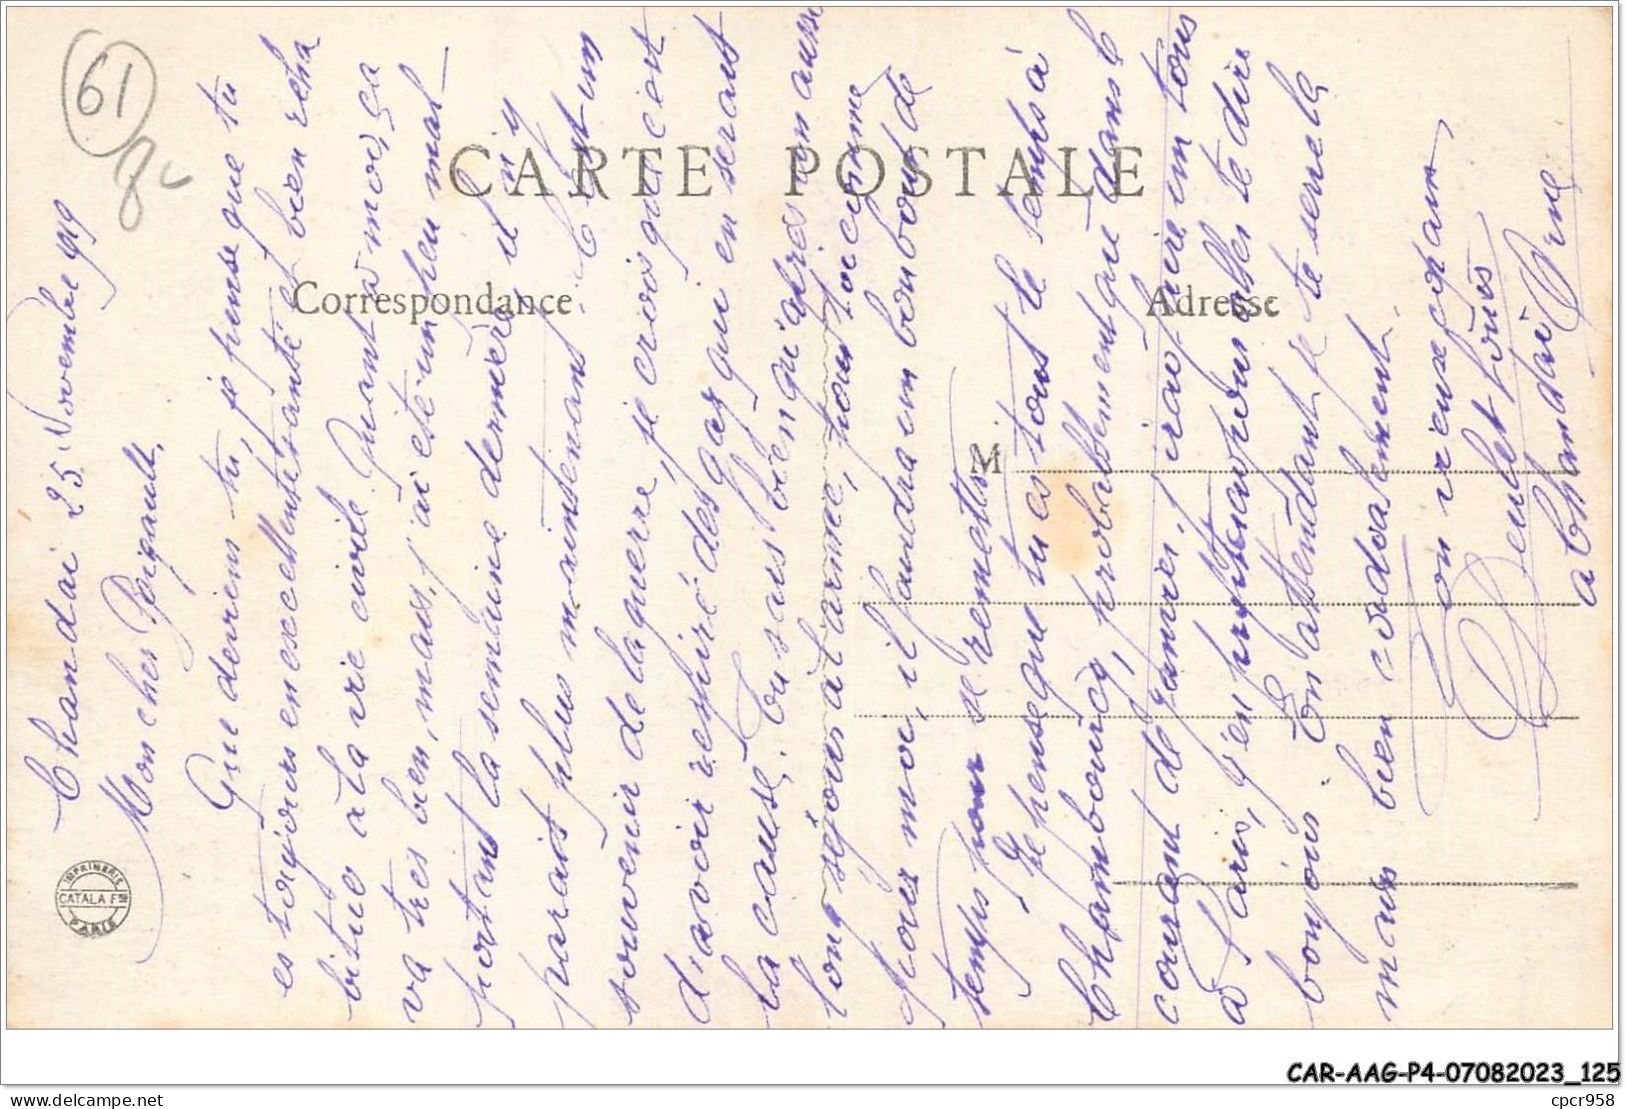 61
8c
CARTE POSTALE
Correspondance
Adresse
M
IMPRIMERIE
CATALA Fres
PARIS
Chandai 25 Novembre 1919
Mon cher Poigault,
Que deviens tu, je pense que tu
es toujours en excellente santé et bien réha
bitué à la vie civile. Quant à moi, ça
va très bien, mais j'ai été un peu mal
portant la semaine dernière, il n'y
parait plus maintenant. C'est un
souvenir de la guerre, je crois que c'est
d'avoir respiré des gaz qui en serait
la cause. Tu sais bien qu'après un aussi
long séjour à l'armée, tout comme
pour moi, il faudra un bon bout de
temps pour se remettre.
Je pense que tu es tout le temps à
Chambourcy, probablement que dans le
courant de Janvier, j'irai faire un tour
à Paris, j'en profiterai pour aller te dire
bonjour. En attendant je te serre la
main bien cordialement.
Ton vieux copain
à Chandai Orne
CAR-AAG-P4-07082023_125
delcampe.net
cpcr958